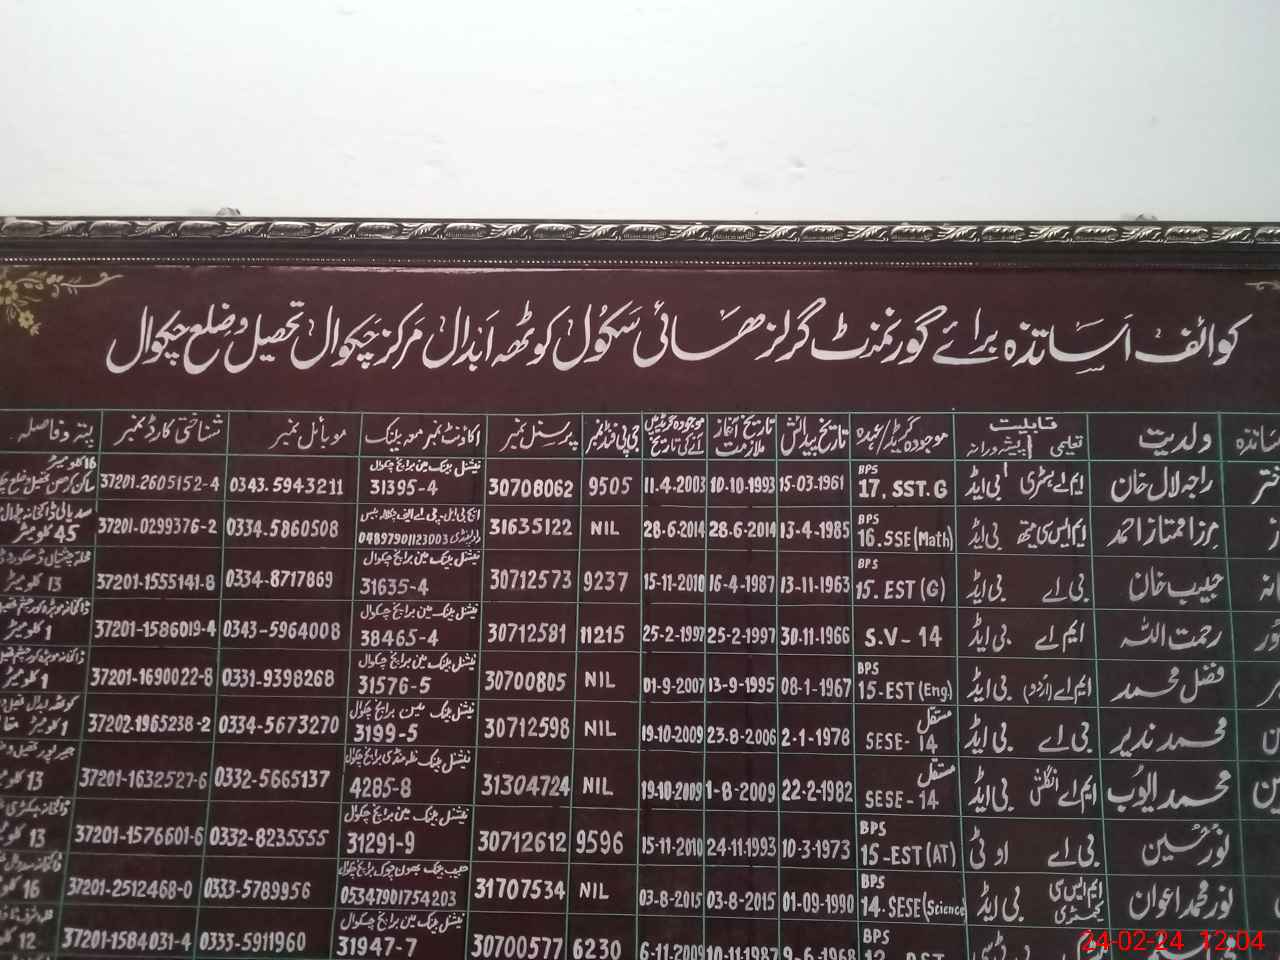 کوائف اساتذہ برائے گورنمنٹ گرلز ھائی سکول کوٹھہ ابدال مرکز چکوال تحصیل و ضلع چکوال
ولدیت قابلیت تعلیمی پیشہ ورانہ موجودہ گریڈ/عہدہ تاریخ پیدائش تاریخ آغاز ملازمت موجودہ گریڈ میں آنے کی تاریخ جی پی فنڈ نمبر پرسنل نمبر اکاؤنٹ نمبر معہ بینک موبائل نمبر شناختی کارڈ نمبر پتہ و فاصلہ
راجہ لال خان ایم اے ہسٹری بی ایڈ BPS 17. SST. G 15-03-1961 10-10-1993 11.4-2003 9505 30708062 نیشنل بینک مین برانچ چکوال 31395-4 0343.5943211 37201-2605152-4 16 کلومیٹر
مرزا ممتاز احمد ایم ایس سی میتھ بی ایڈ BPS 16.SSE(Math) 13-4-1985 28-6-2014 28-6-2014 NIL 31635122 04897901123003 0334.5860508 37201-0299376-2 45 کلومیٹر
حبیب خان بی اے بی ایڈ BPS 15. EST (G) 13-11-1963 16-4-1987 15-11-2010 9237 30712573 نیشنل بینک مین برانچ چکوال 31635-4 0334-8717869 37201-1555141-8 13 کلومیٹر
رحمت اللہ ایم اے بی ایڈ S.V-14 30-11-1966 25-2-1997 25-2-1997 11215 30712581 نیشنل بینک مین برانچ چکوال 38465-4 0343-5964008 37201-1586019-4 1 کلومیٹر
فضل محمد ایم اے (اردو) بی ایڈ BPS 15-EST (Eng.) 08-1-1967 13-9-1995 01-9-2007 NIL 30700805 نیشنل بینک مین برانچ چکوال 31576-5 0331-9398268 37201-1690022-8 1 کلومیٹر
محمد نذیر بی اے بی ایڈ مستقل SESE-14 2-1-1978 23.8-2006 19-10-2009 NIL 30712598 نیشنل بینک مین برانچ چکوال 3199-5 0334-5673270 37202.1965238-2 1 کلومیٹر
محمد ایوب ایم اے انگلش بی ایڈ مستقل SESE-14 22-2-1982 1-8-2009 19-10-2009 NIL 31304724 نیشنل بینک غلہ منڈی برانچ چکوال 4285-8 0332-5665137 37201-1632527-6 13 کلومیٹر
نور حسین بی اے او ٹی BPS 15-EST(AT) 10-3-1973 24-11-1993 15-11-2010 9596 30712612 نیشنل بینک مین برانچ چکوال 31291-9 0332-8235555 37201-1576601-6 13
نور محمد اعوان ایم ایس سی کیمسٹری بی ایڈ BPS 14.SESE(Science 01-09-1990 03-8-2015 03-8-2015 NIL 31707534 حبیب بینک بھون چوک برانچ چکوال 05347901754203 0333-5789956 37201-2512468-0 16
BPS 9-6-1968 10-11-1987 6-11-2009 6230 30700577 نیشنل بینک مین برانچ چکوال 31947-7 0333-5911960 37201-1584031-4 12
24-02-24 12:04